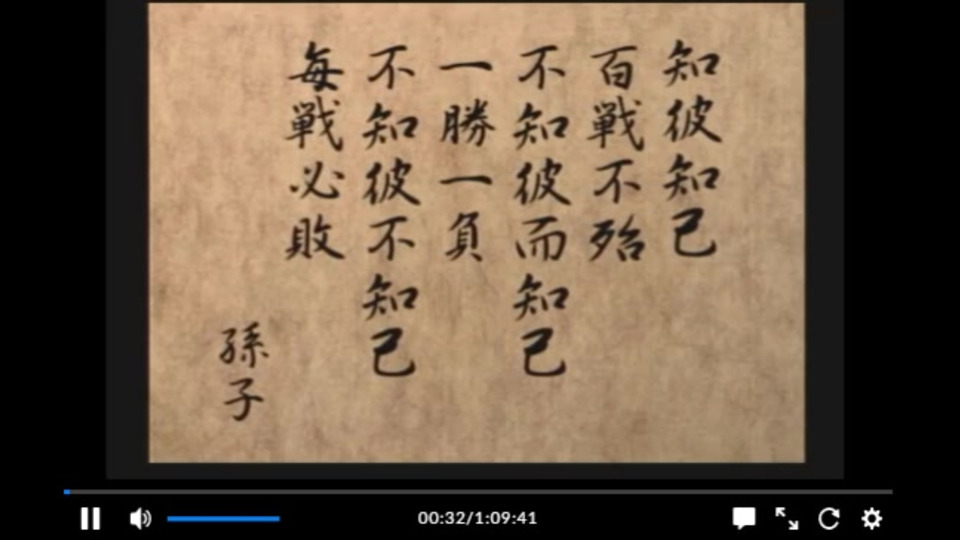 知彼知己
百戦不殆
不知彼而知己
一勝一負
不知彼不知己
毎戦必敗
孫子
00:32/1:09:41